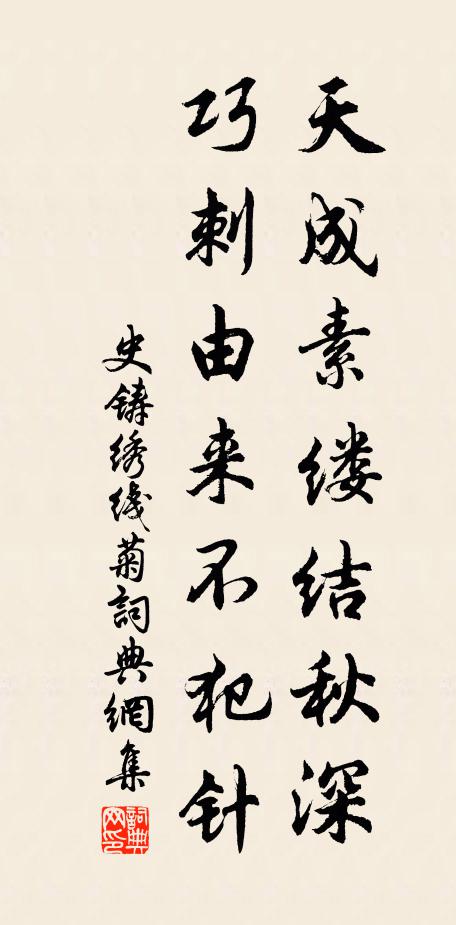 天成素缕结秋深
巧刺由来不犯针
史铸绣线菊詞典網集
詞典网印